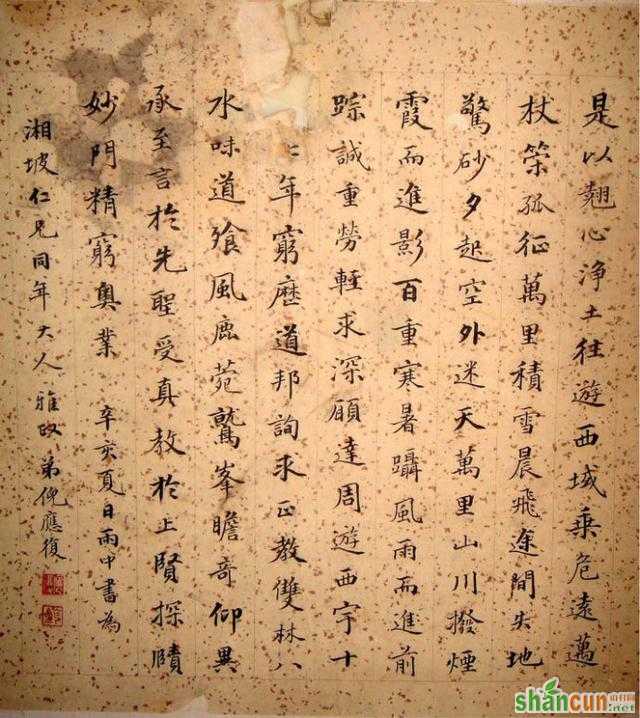 是以翹心淨土往遊西域乘危遠邁
杖策孤征萬里積雪晨飛途間失地
驚砂夕起空外迷天萬里山川撥煙
霞而進影百重寒暑躡風雨而進前
踪誠重勞輕求深願達周遊西宇十
七年窮歷道邦詢求正教雙林八
水味道飡風鹿菀鷲峯瞻奇仰異
承至言於先聖受真教於上賢探賾
妙門精窮奧業 辛亥夏日雨中書為
湘坡仁兄同年大人雅政 弟倪應復
shancun
.net